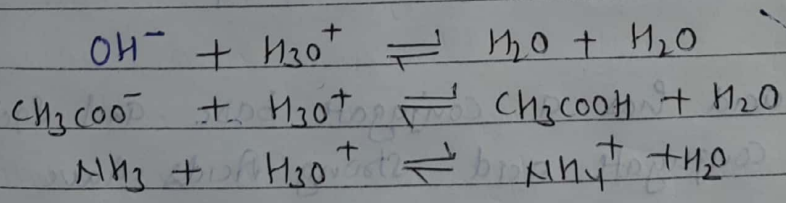 OH⁻ + H₃O⁺ ⇌ H₂O + H₂O
CH₃COO⁻ + H₃O⁺ ⇌ CH₃COOH + H₂O
NH₃ + H₃O⁺ ⇌ NH₄⁺ + H₂O